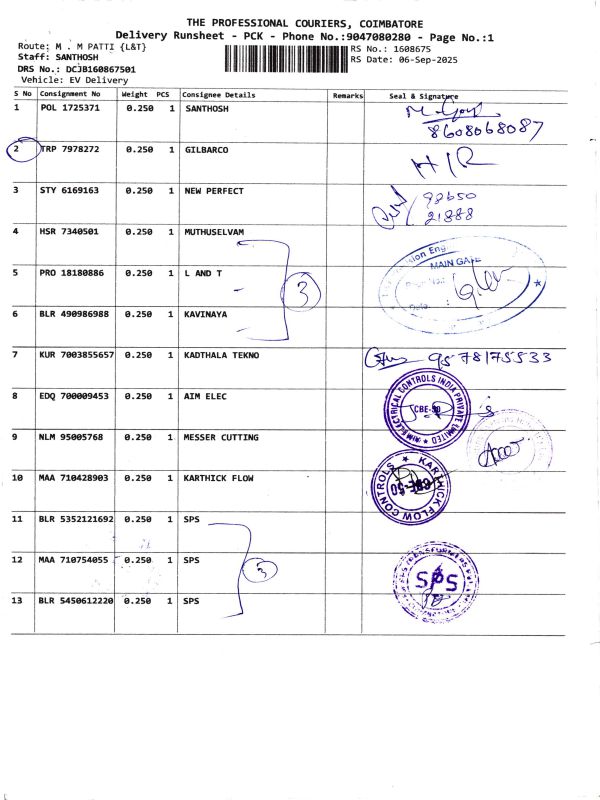 THE PROFESSIONAL COURIERS, COIMBATORE
Delivery Runsheet - PCK - Phone No.:9047080280 - Page No.:1
Route: M . M PATTI {L&T}
RS No.: 1608675
Staff: SANTHOSH
RS Date: 06-Sep-2025
DRS No.: DCJB160867501
Vehicle: EV Delivery
S No Consignment No Weight PCS Consignee Details Remarks Seal & Signature
1 POL 1725371 0.250 1 SANTHOSH
8608068087
2 TRP 7978272 0.250 1 GILBARCO
H/R
3 STY 6169163 0.250 1 NEW PERFECT
98650
21888
4 HSR 7340501 0.250 1 MUTHUSELVAM
MAIN GATE
5 PRO 18180886 0.250 1 L AND T
3
6 BLR 490986988 0.250 1 KAVINAYA
7 KUR 7003855657 0.250 1 KADTHALA TEKNO
9578175533
8 EDQ 700009453 0.250 1 AIM ELEC
AIM ELECTRICAL CONTROLS INDIA PRIVATE LIMITED
CBE-50
9 NLM 95005768 0.250 1 MESSER CUTTING
10 MAA 710428903 0.250 1 KARTHICK FLOW
KARTHICK FLOW CONTROLS
CBE-50
11 BLR 5352121692 0.250 1 SPS
12 MAA 710754055 0.250 1 SPS
3
SPS
13 BLR 5450612220 0.250 1 SPS